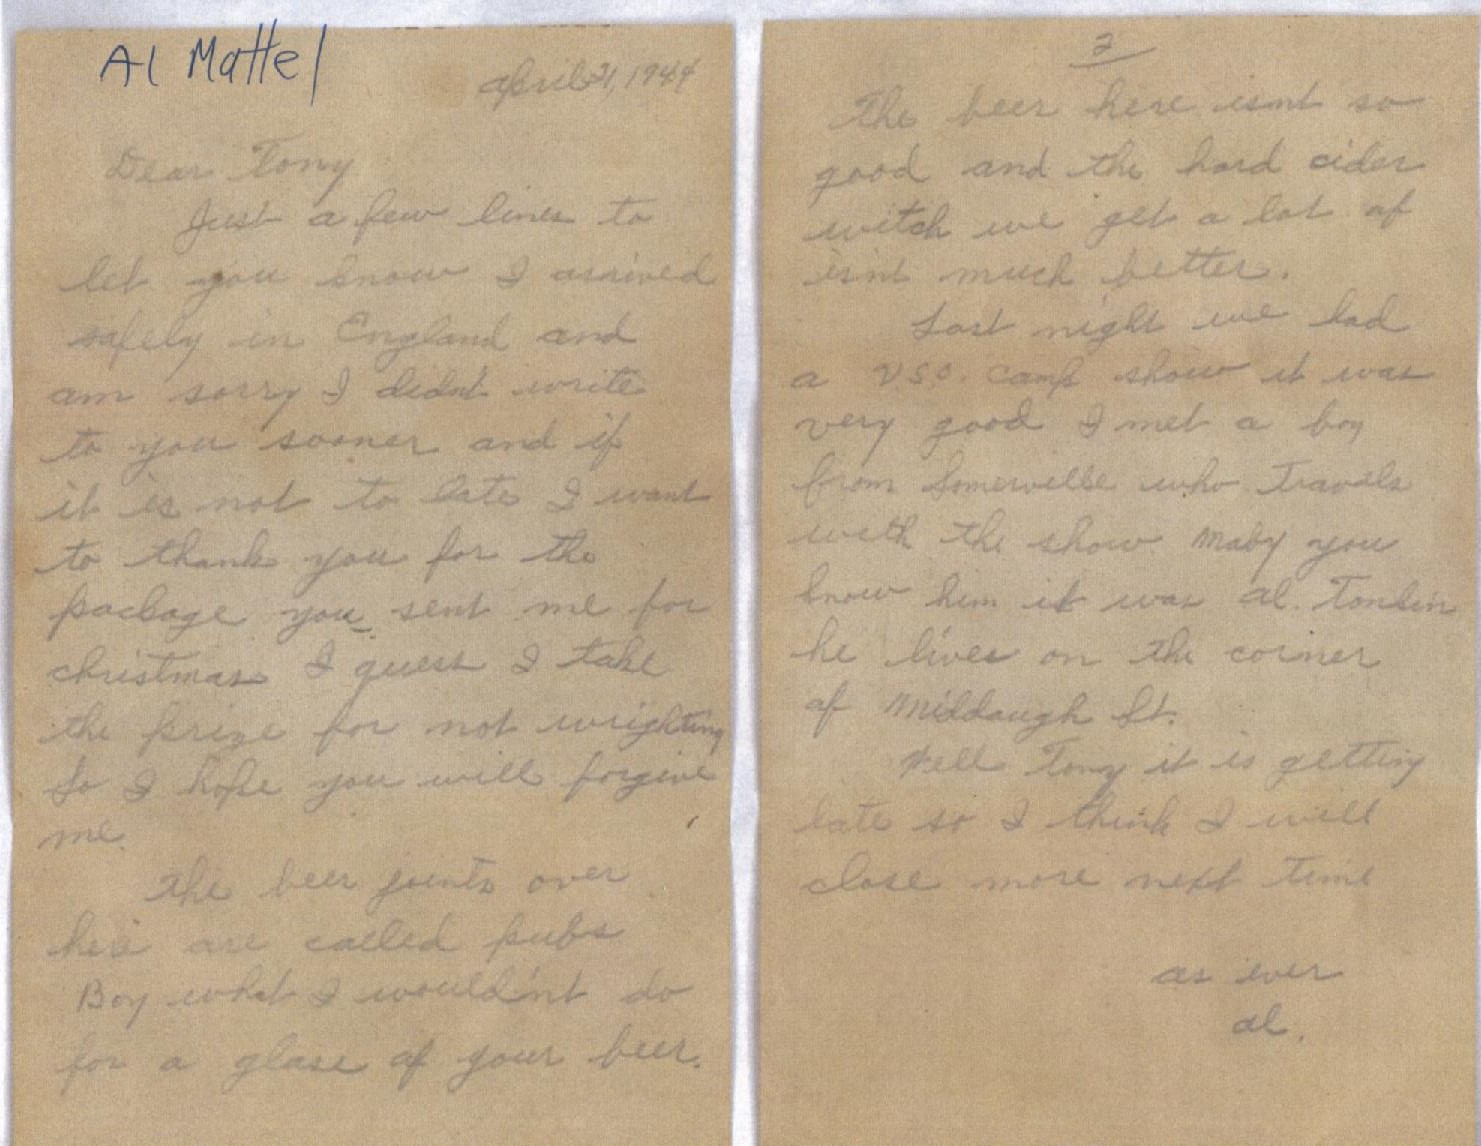 Al Mattel
April 21, 1944
Dear Tony
Just a few lines to
let you know I arrived
safely in England and
am sorry I didnt write
to you sooner and if
it is not to late I want
to thank you for the
package you sent me for
christmas I guess I take
the prize for not wrighting
So I hope you will forgive
me.
the beer joints over
here are called pubs
Boy what I would'nt do
for a glass of your beer.
2
The beer here isnt so
good and the hard cider
witch we get a lot of
isnt much better.
Last night we had
a U.S.O. camp show it was
very good I met a boy
from Somerville who travels
with the show maby you
know him it was Al.
he lives on the corner
of Middaugh St.
Well Tony it is getting
late so I think I will
close more next time
as ever
Al.